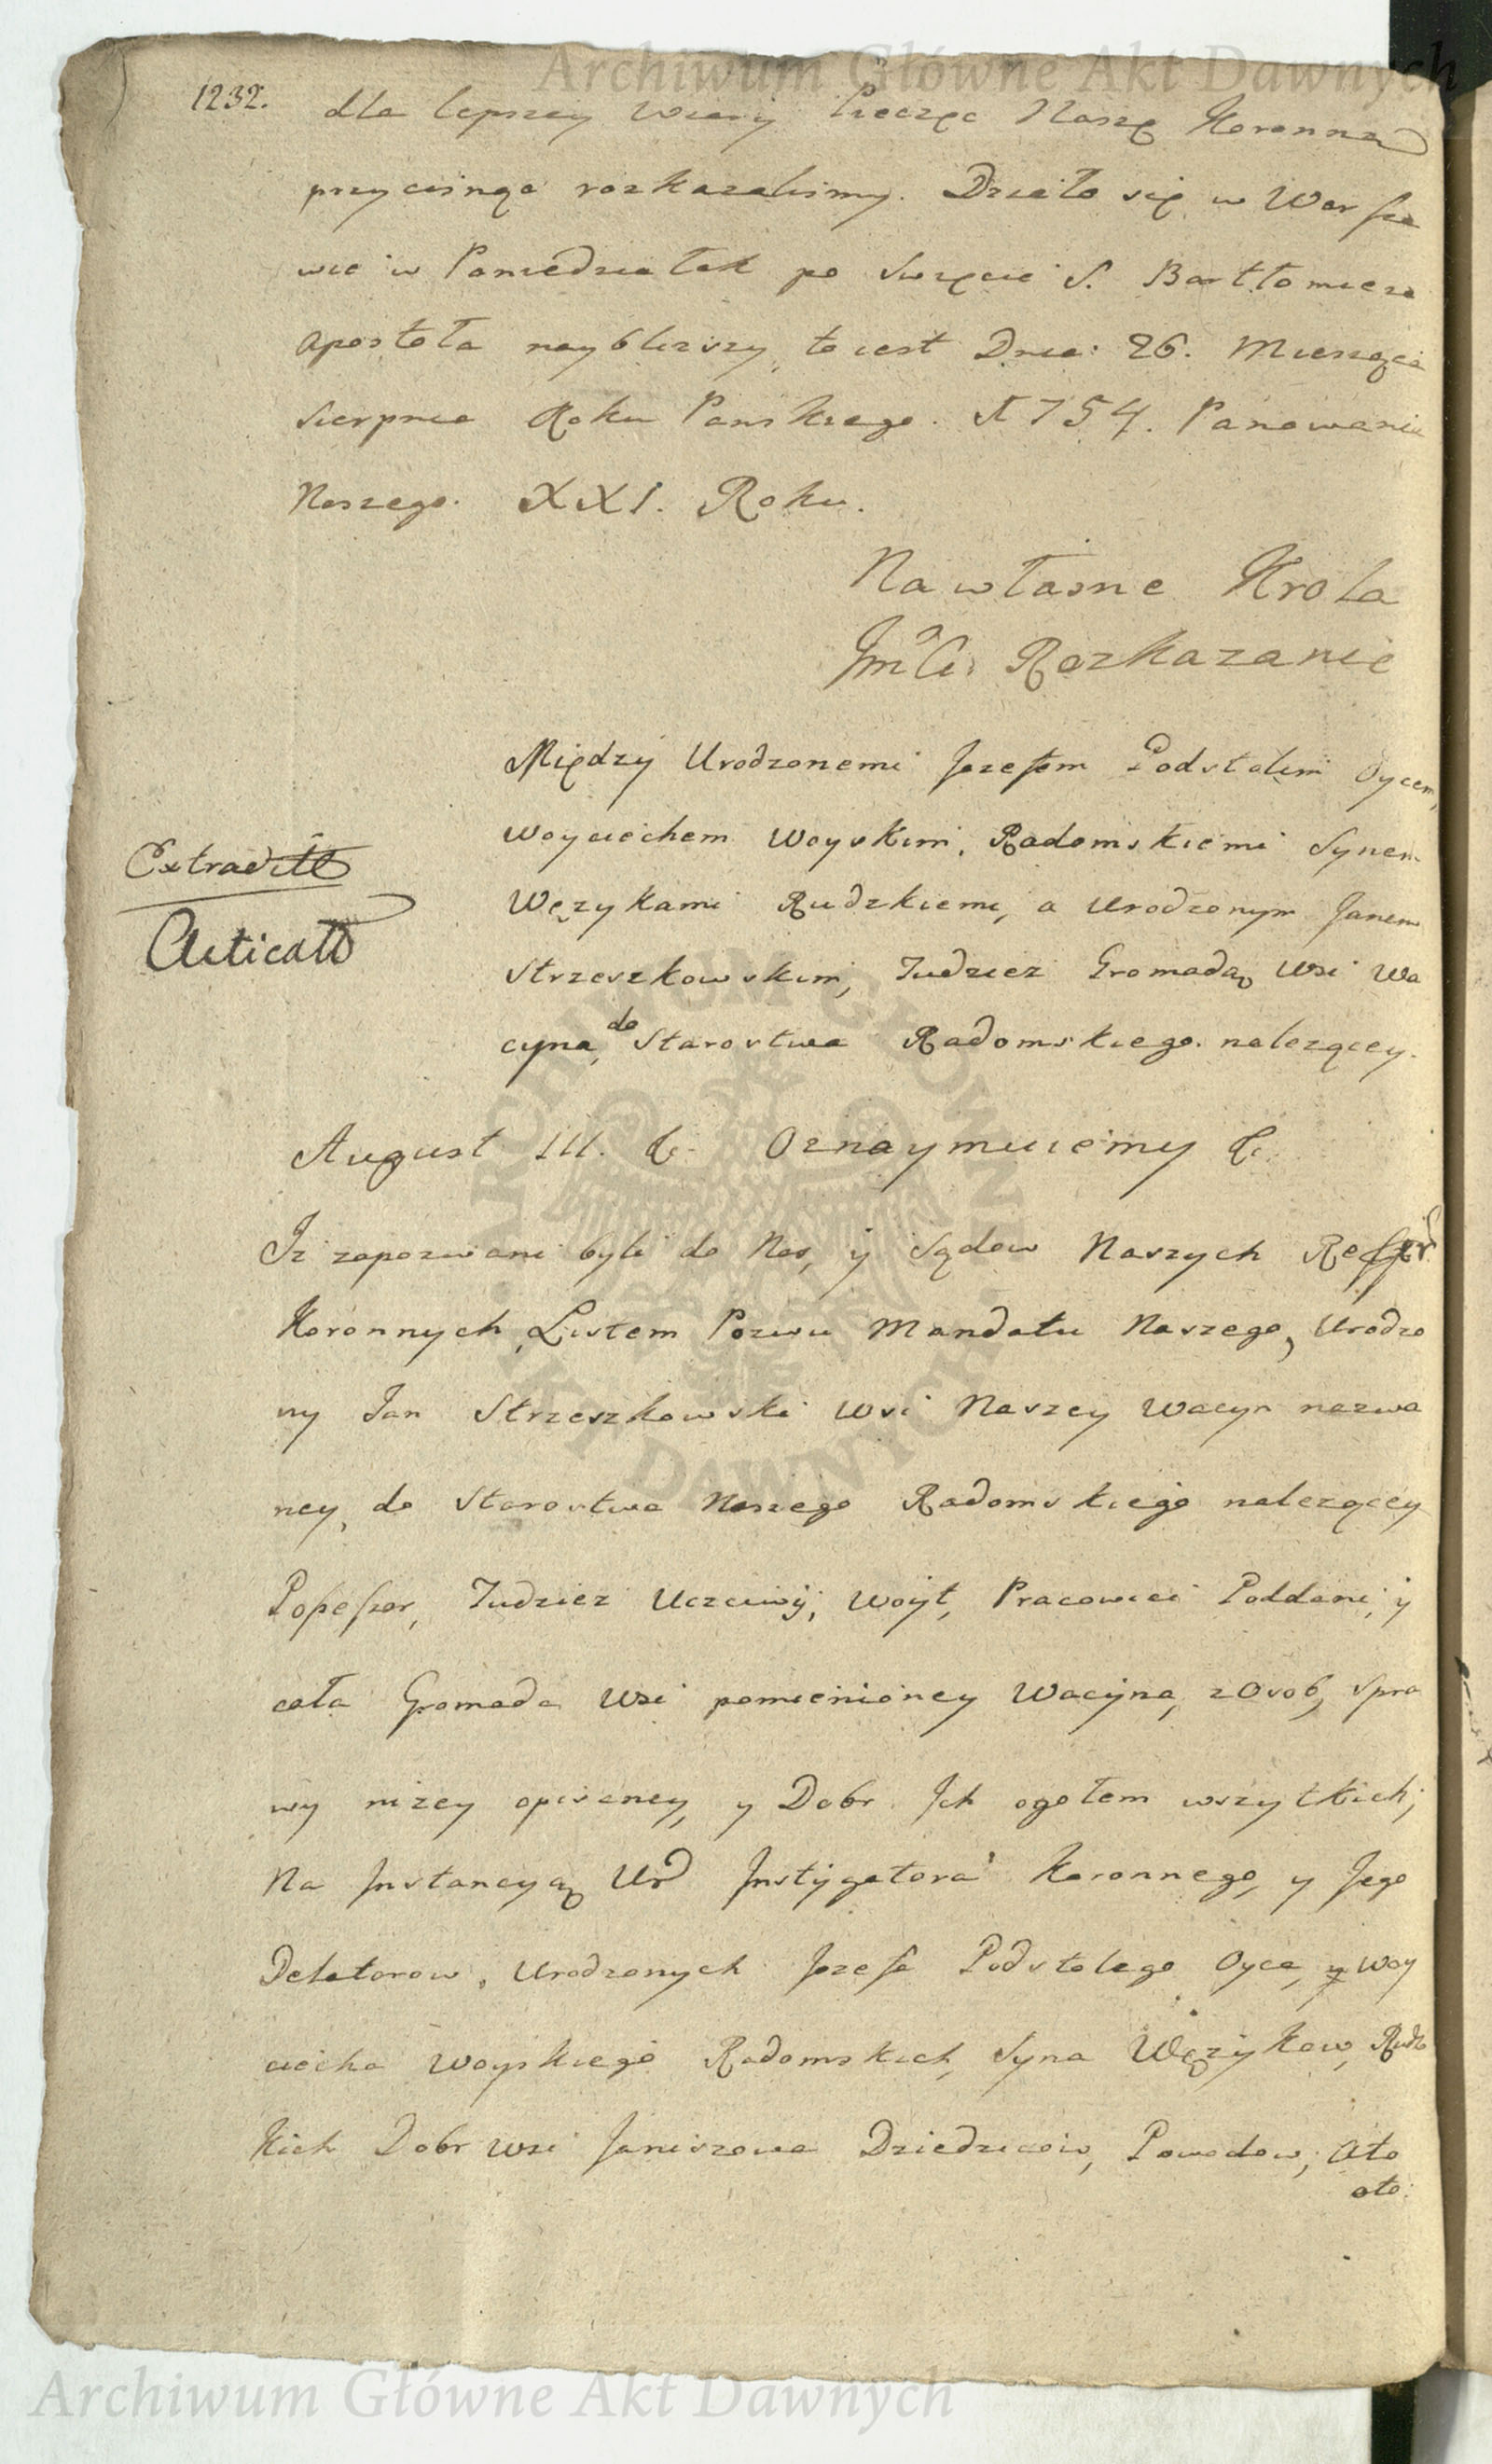 Archiwum Główne Akt Dawnych
1232.
dla lepszey wiary Pieczęc Naszę Koronną
przycisnąc rozkazalismy. Działo się w Warsza
wie w Poniedziałek po Swięcie S. Bartłomieia
Apostoła naybliższy, to iest Dnia: 26. Miesiąca
Sierpnia Roku Panskiego. 1754. Panowania
Naszego. XXI. Roku.
Na własne Krola
Jmci Rozkazanie
Extradit
Acticat
Między Urodzonemi Jozefem Podstolim Oycem,
Woyciechem Woyskim, Radomskiemi Synem
Wężykami Rudzkiemi, a Urodzonym Janem
Strzeszkowskim, Tudziez Gromadą Wsi Wa
cyna, do Starostwa Radomskiego. nalezącey.
August III. &. Oznaymuiemy &.
Iż zapozwani byli do Nas, y Sądow Naszych Reffer.
Koronnych, Listem Pozwu Mandatu Naszego, Urodzo
ny Jan Strzeszkowski Wsi Naszey Wacyn nazwa
ney, do Starostwa Naszego Radomskiego nalezącey
Possessor, Tudziez Uczciwy, Woyt, Pracowici Poddani, y
cała Gromada Wsi pomienioney Wacyna, z Osob, Spra
wy nizey opisaney, y Dobr Ich ogołem wszytkich;
Na Instancyą Ur. Instygatora Koronnego, y Jego
Delatorow, Urodzonych Jozefa Podstolego Oyca, y Woy
ciecha Woyskiego Radomskich, Syna Wężykow, Rudz
kich Dobr Wsi Janiszowa Dziedzicow, Powodow; Oto
oto:
ARCHIWUM GŁÓWNE AKT DAWNYCH
Archiwum Główne Akt Dawnych